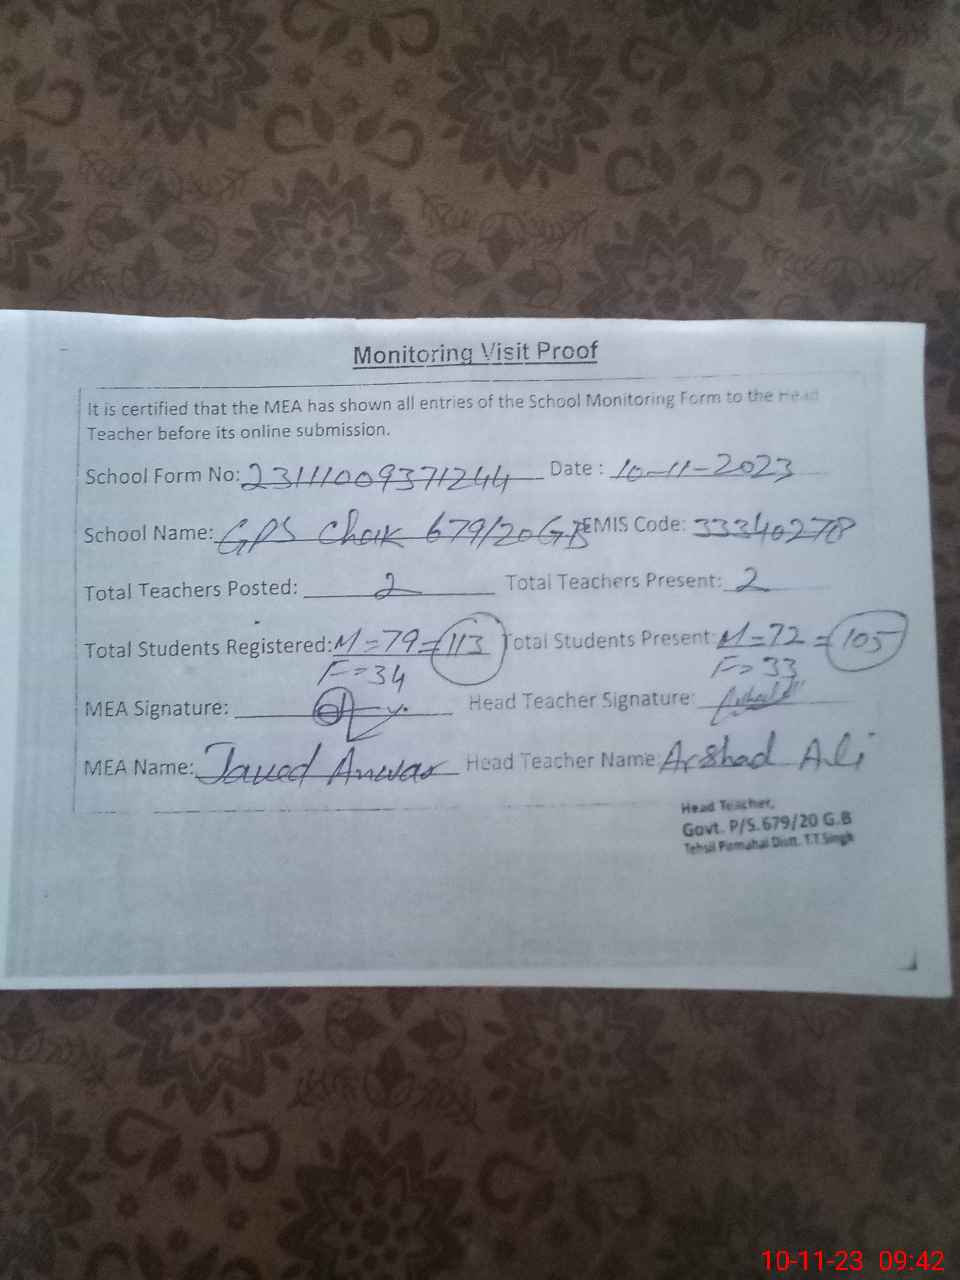 Monitoring Visit Proof
It is certified that the MEA has shown all entries of the School Monitoring Form to the Head
Teacher before its online submission.
School Form No: 23111009371244 Date : 10-11-2023
School Name: GPS Chak 679/20 GB EMIS Code: 33340278
Total Teachers Posted: 2 Total Teachers Present: 2
Total Students Registered: M=79=113 Total Students Present: M=72=105
F=34 F=33
MEA Signature: Head Teacher Signature:
MEA Name: Javed Anwar Head Teacher Name: Arshad Ali
Head Teacher,
Govt. P/S. 679/20 G.B
Tehsil Pirmahal Distt. T.T.Singh
10-11-23 09:42